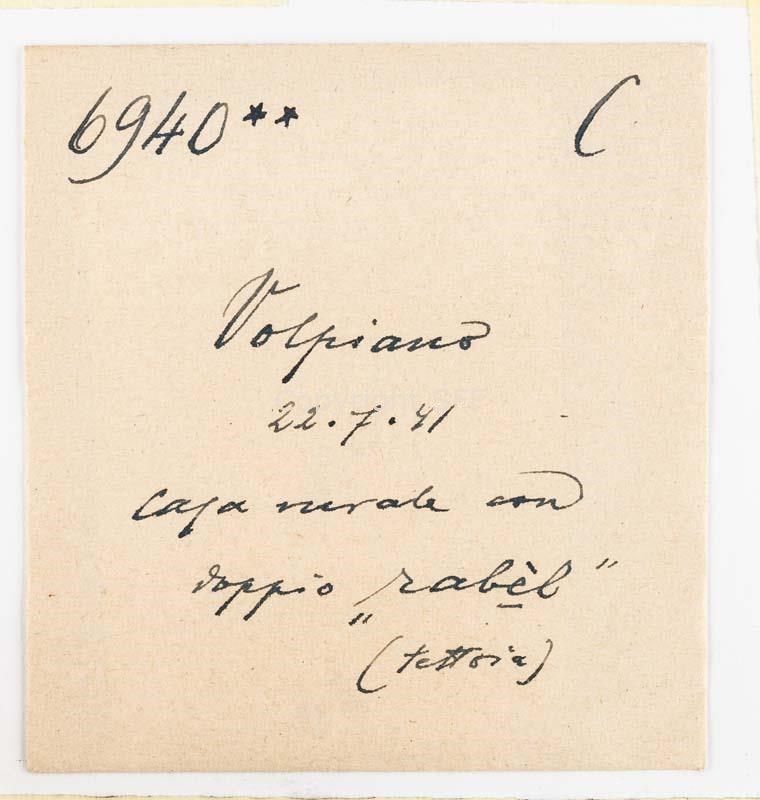 6940** C
Volpiano
22.7.41
casa rurale con
doppio „rabèl"
(tettoia)